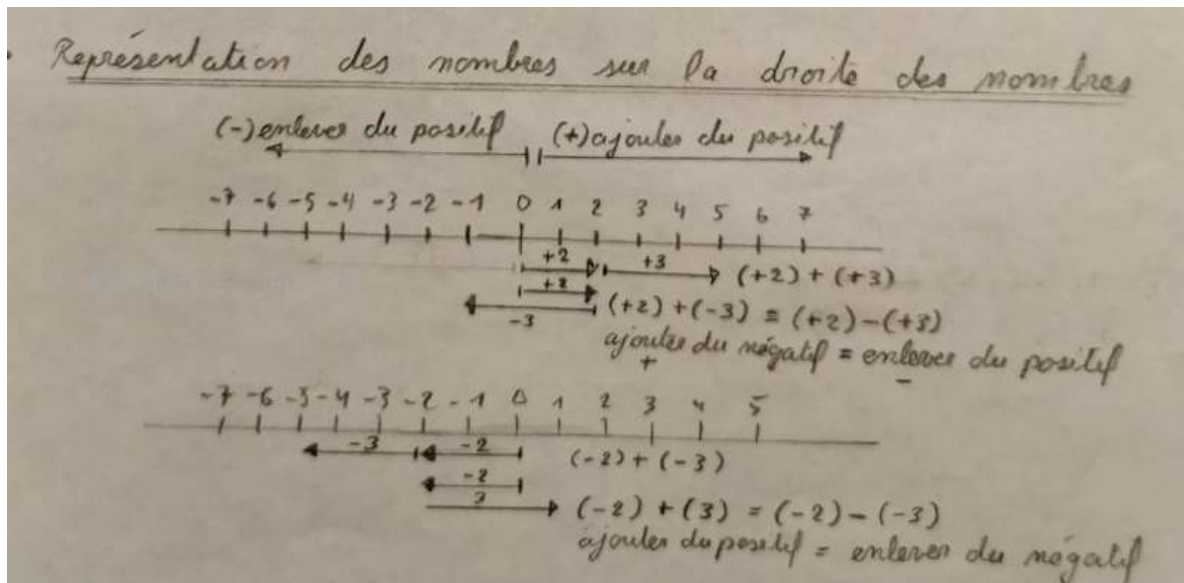 Représentation des nombres sur la droite des nombres
(-) enlever du positif (+) ajouter du positif
-7 -6 -5 -4 -3 -2 -1 0 1 2 3 4 5 6 7
+2 +3 (+2) + (+3)
+2
-3 (+2) + (-3) = (+2) - (+3)
ajouter du négatif = enlever du positif
+ -
-7 -6 -5 -4 -3 -2 -1 0 1 2 3 4 5
-3 -2 (-2) + (-3)
-2
3 (-2) + (3) = (-2) - (-3)
ajouter du positif = enlever du négatif